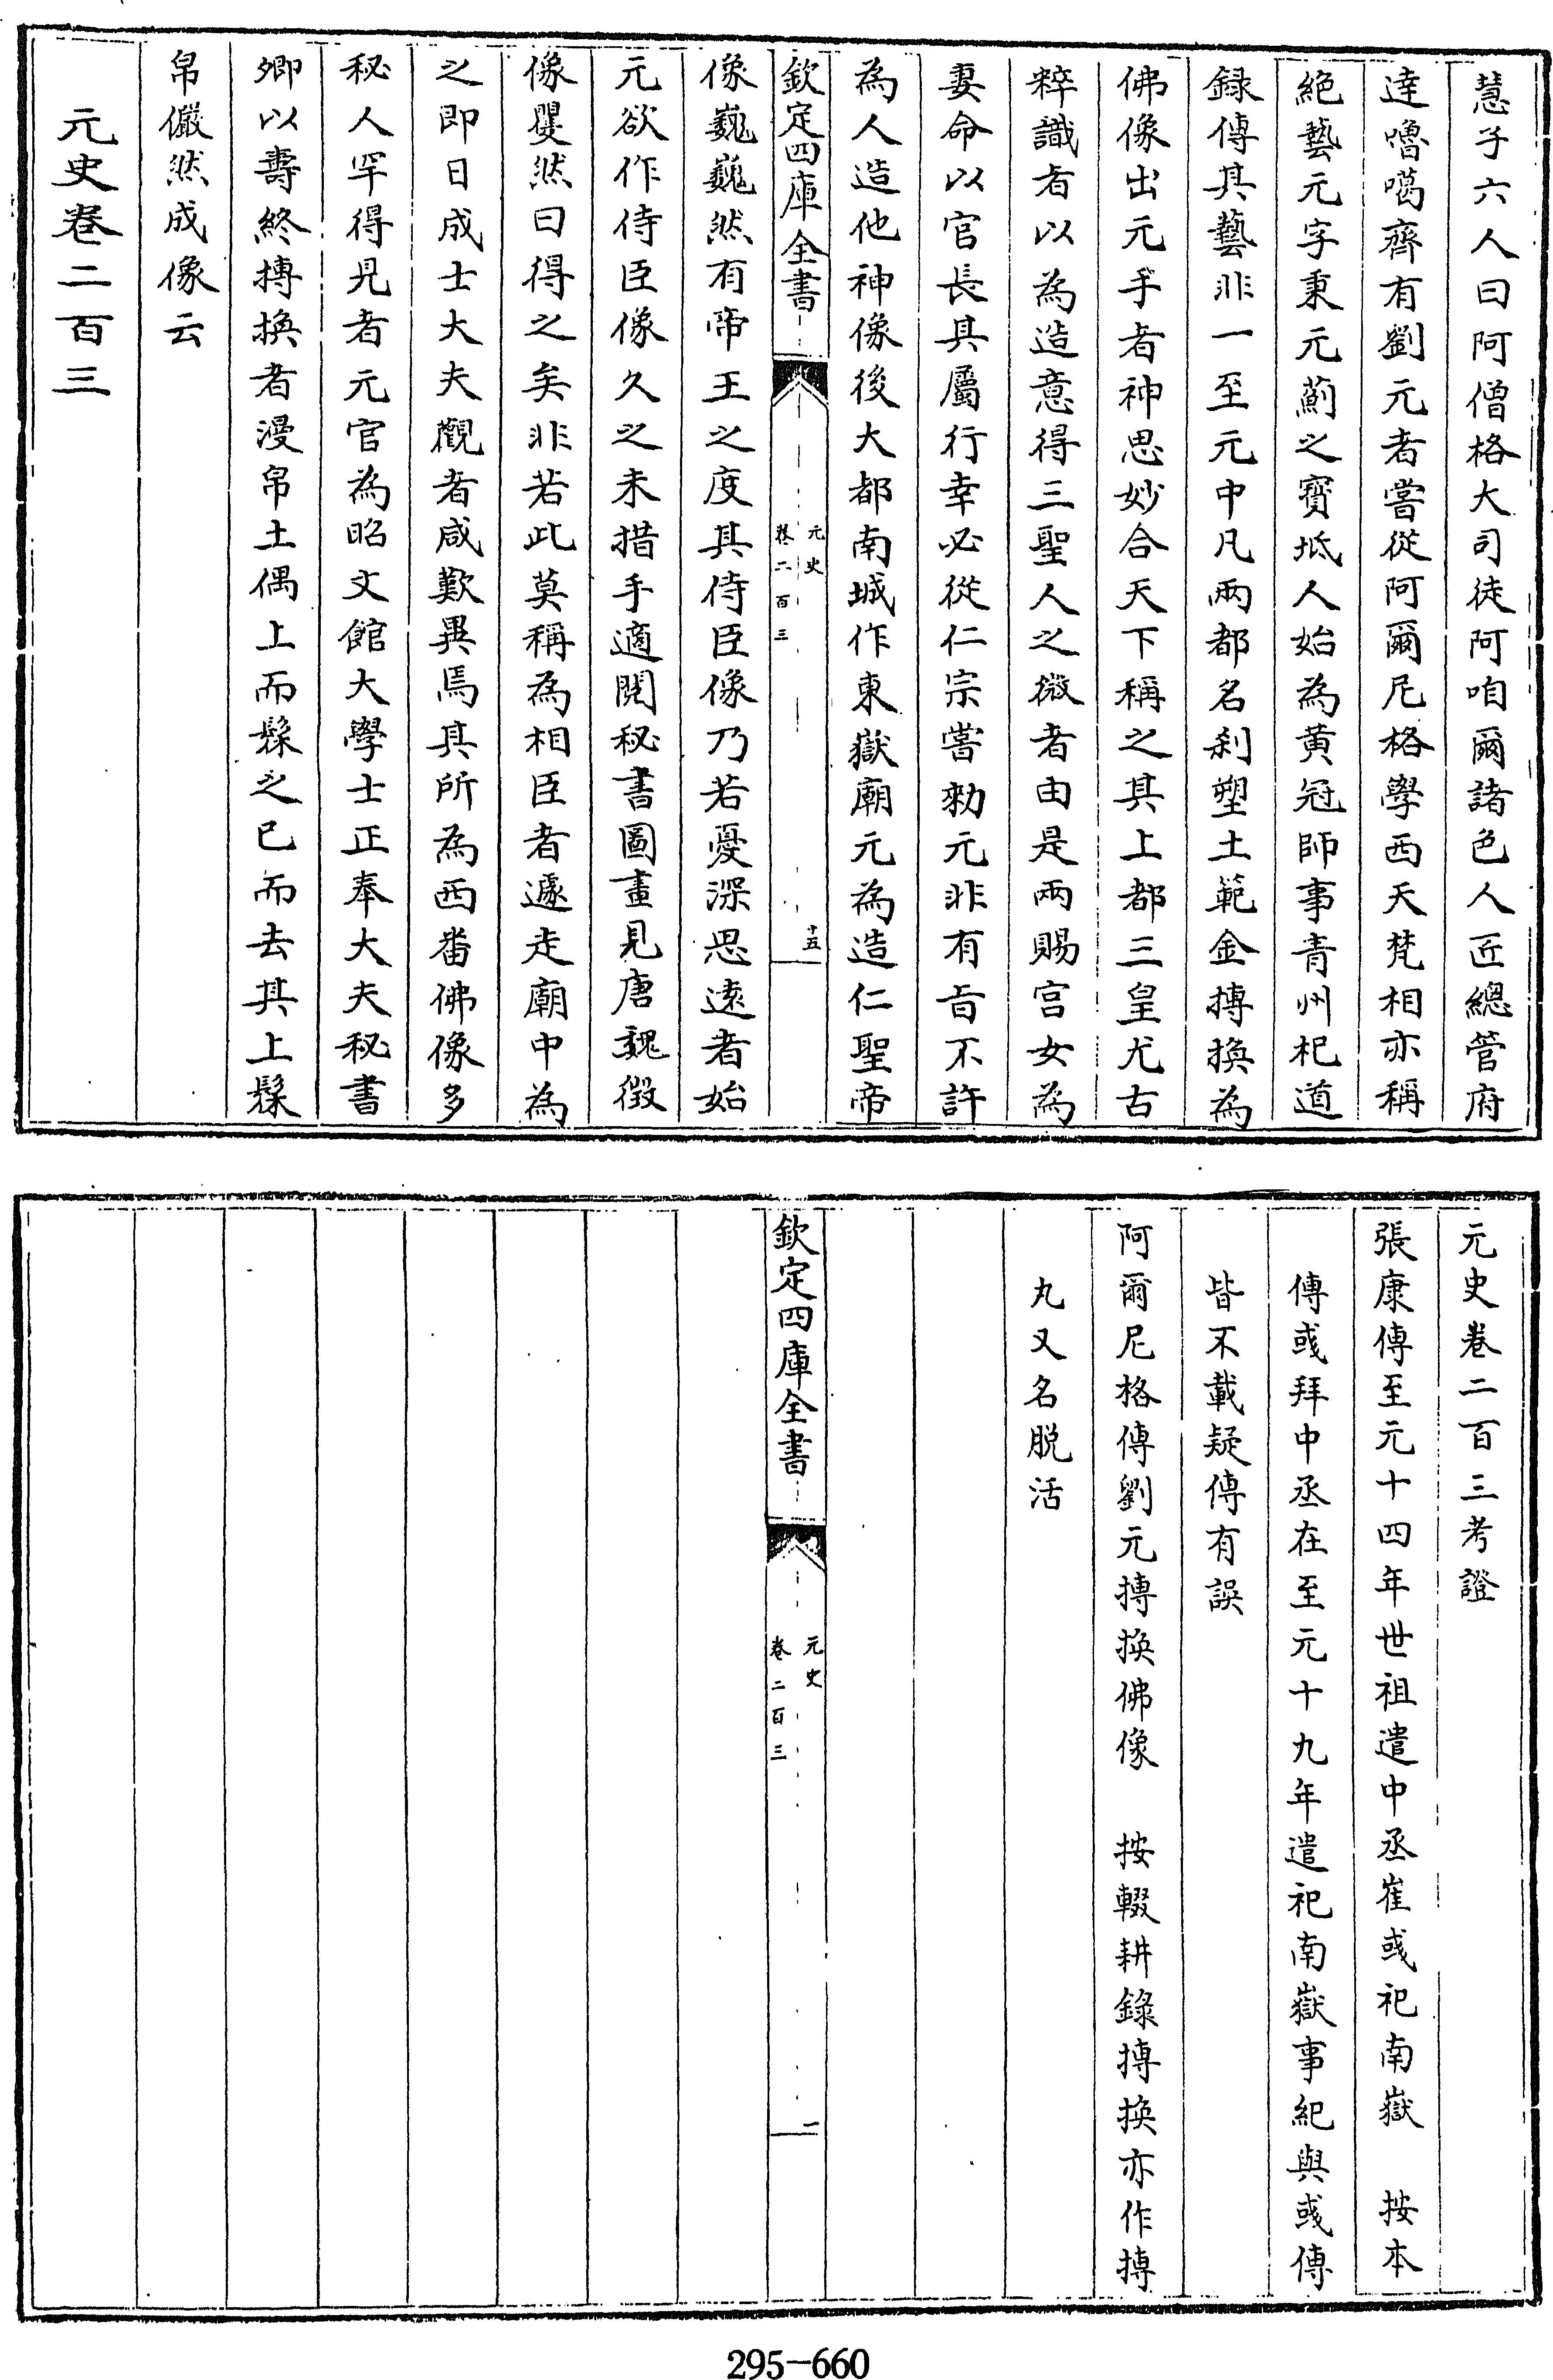 慧子六人曰阿僧格大司徒阿咱爾諸色人匠總管府
達嚕噶齊有劉元者嘗從阿爾尼格學西天梵相亦稱
絕藝元字秉元薊之寳坻人始為黄冠師事青州杞道
録傳其藝非一至元中凡兩都名刹塑土範金摶換為
佛像出元手者神思妙合天下稱之其上都三皇尤古
粹識者以為造意得三聖人之微者由是兩賜宫女為
妻命以官長其屬行幸必從仁宗嘗勑元非有旨不許
為人造他神像後大都南城作東嶽廟元為造仁聖帝
欽定四庫全書
元史
卷二百三
十五
像巍巍然有帝王之度其侍臣像乃若憂深思逺者始
元欲作侍臣像久之未措手適閲秘書圖畫見唐魏徴
像矍然曰得之矣非若此莫稱為相臣者遽走廟中為
之即日成士大夫觀者咸歎異焉其所為西畨佛像多
秘人罕得見者元官為昭文館大學士正奉大夫秘書
卿以壽終摶換者漫帛土偶上而髹之已而去其土髹
帛儼然成像云
元史卷二百三
元史卷二百三考證
張康傳至元十四年世祖遣中丞崔彧祀南嶽　按本
傳彧拜中丞在至元十九年遣祀南嶽事紀與彧傳
皆不載疑傳有誤
阿爾尼格傳劉元摶換佛像　按輟耕錄摶換亦作摶
丸又名脱活
欽定四庫全書
元史
卷二百三
一
295-660